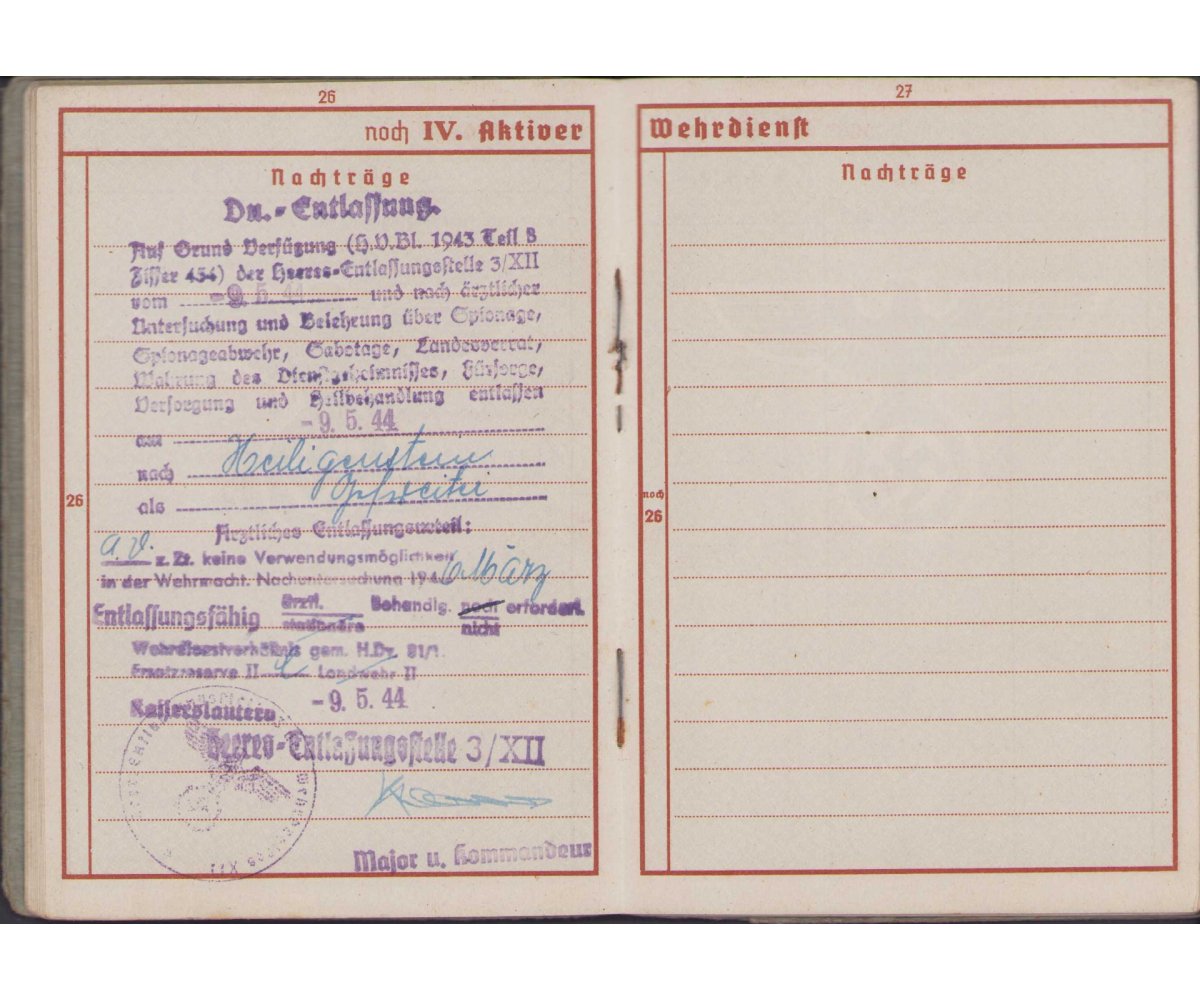 26
noch IV. Aktiver
Nachträge
Du.-Entlassung.
Auf Grund Verfügung (H.V.Bl. 1943 Teil B
Ziffer 434) der Heeres-Entlassungsstelle 3/XII
vom -9. 5. 44 und nach ärztlicher
Untersuchung und Belehrung über Spionage,
Spionageabwehr, Sabotage, Landesverrat,
Wahrung des Dienstgeheimnisses, Fürsorge,
Versorgung und Heilbehandlung entlassen
am -9. 5. 44
nach Heiligenstein
als
26
Ärztliches Entlassungsurteil:
a.v. z. Zt. keine Verwendungsmöglichkeit
in der Wehrmacht. Nachuntersuchung 194 März
Entlassungsfähig ärztl. Behandlg. noch erfordert.
stationäre nicht
Wehrdienstverhältnis gem. H.Dv. 81/1.
Ersatzreserve II Landwehr II
Kaiserslautern -9. 5. 44
Heeres-Entlassungsstelle 3/XII
Major u. Kommandeur
27
Wehrdienst
Nachträge
noch
26